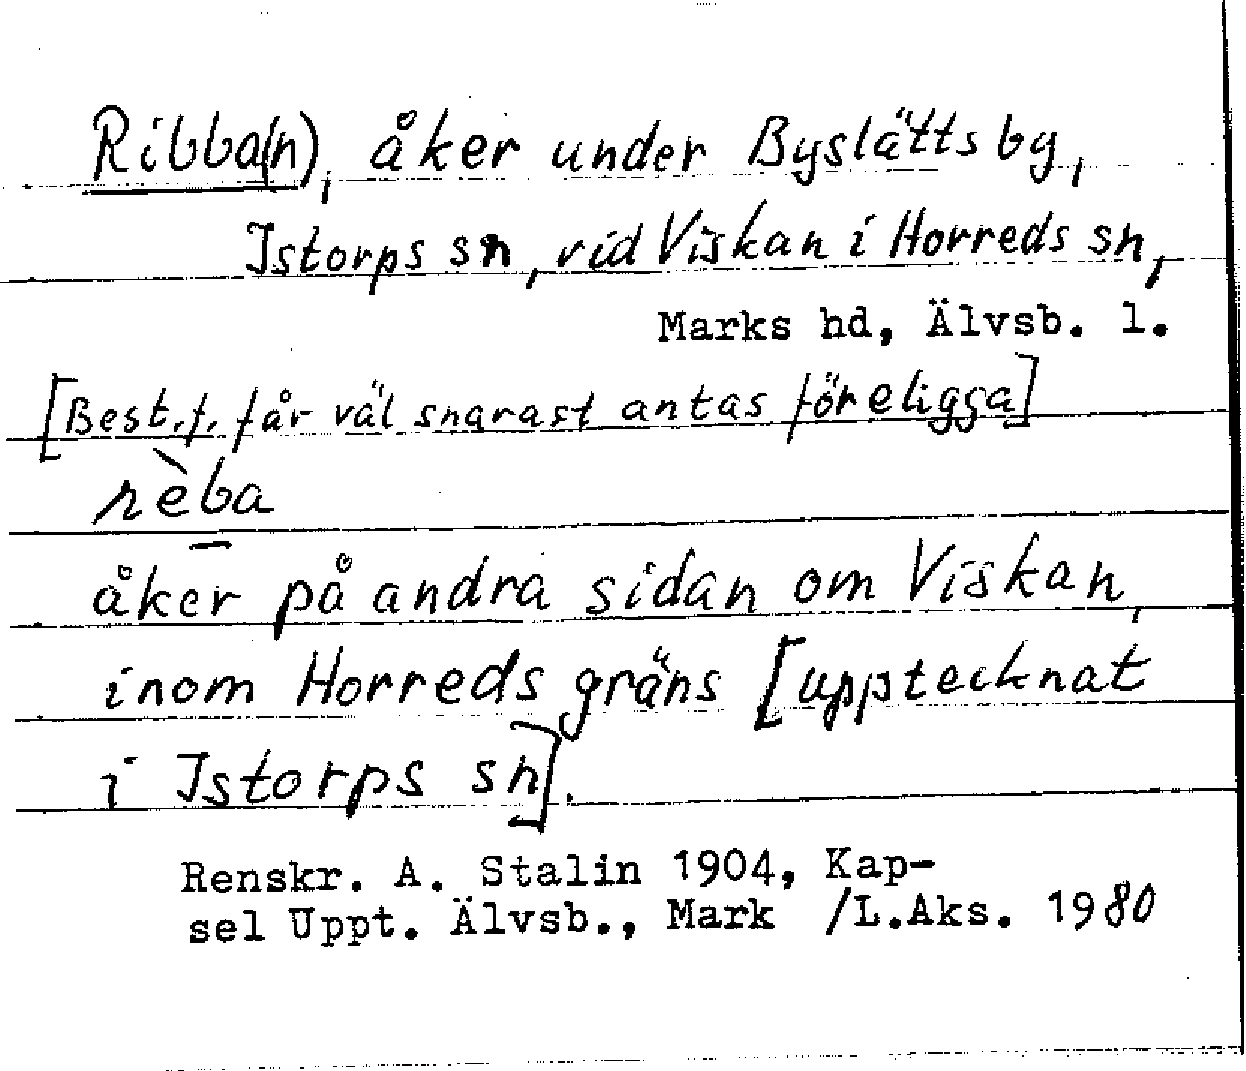 Ribba(n), åker under Byslätts by,
Istorps sn, vid Viskan i Horreds sn,
Marks hd, Älvsb. l.
[Best.f. får väl snarast antas föreligga]
rèba
åker på andra sidan om Viskan,
inom Horreds gräns [upptecknat
i Istorps sn].
Renskr. A. Stalin 1904, Kap-
sel Uppt. Älvsb., Mark /L.Aks. 1980